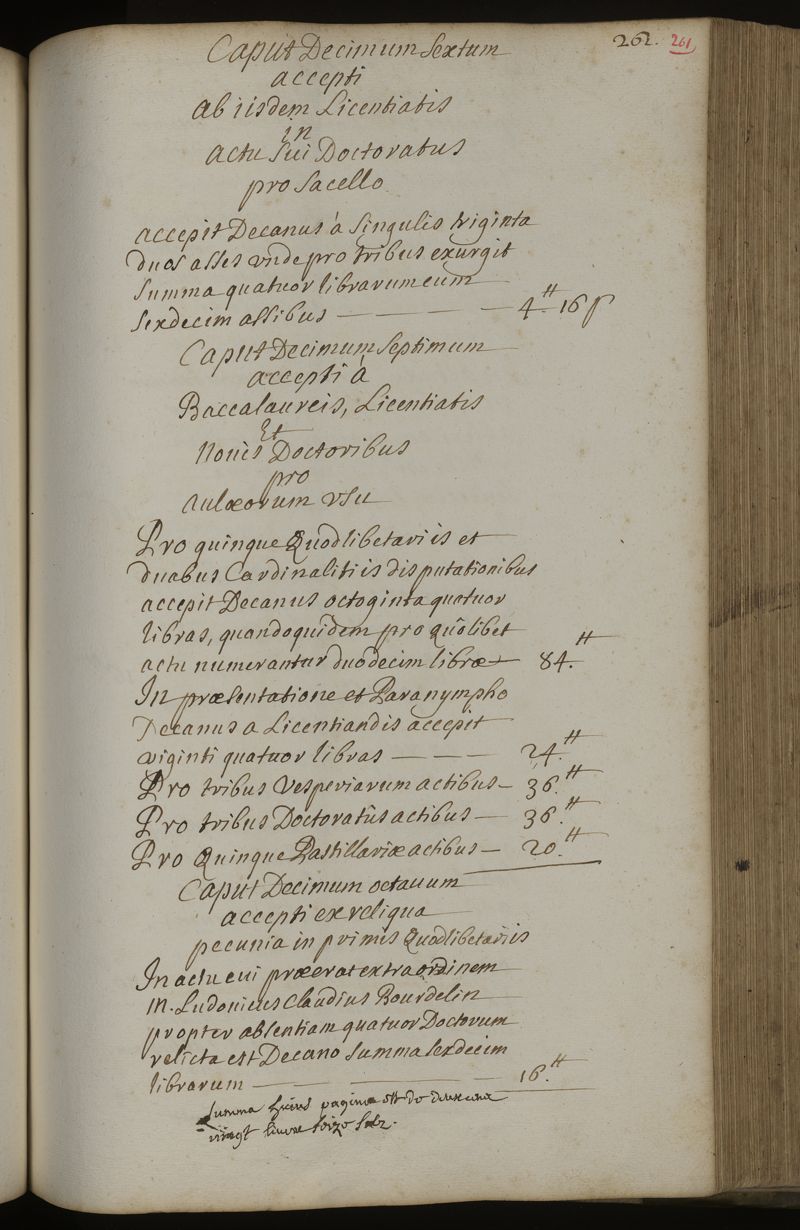 262. 261
Caput Decimum Sextum
accepti
ab iisdem Licentiatis
in
actu sui Doctoratus
pro sacello
accepit Decanus à singulis triginta
duos asses vnde pro tribus exurgit
summa quatuor librarum cum
sexdecim assibus — — — — 4.tt 16 s
Caput Decimum Septimum
accepti à
Baccalaureis, Licentiatis
Et
nouis Doctoribus
pro
aulæorum vsu
Pro quinque Quodlibetariis et
duabus Cardinalitiis disputationibus
accepit Decanus octoginta quatuor
libras, quandoquidem pro quolibet
actu numerantur duodecim libræ — 84.tt
In præsentatione et Paranympho
Decanus a Licentiandis accepit
viginti quatuor libras — — — 24.tt
Pro tribus Vesperiarum actibus — 36.tt
Pro tribus Doctoratûs actibus — 36.tt
Pro Quinque Pastillariæ actibus — 20.tt
Caput Decimum octauum
accepti ex reliqua
pecunia in primis Quodlibetariis
In actu cui præerat extra ordinem
M. Ludouicus Claudius Bourdelin
propter absentiam quatuor Doctorum
relicta est Decano summa sexdecim
librarum — — — — 16.tt
Summa huius paginæ est de deux cent
vingt livre seize solz.